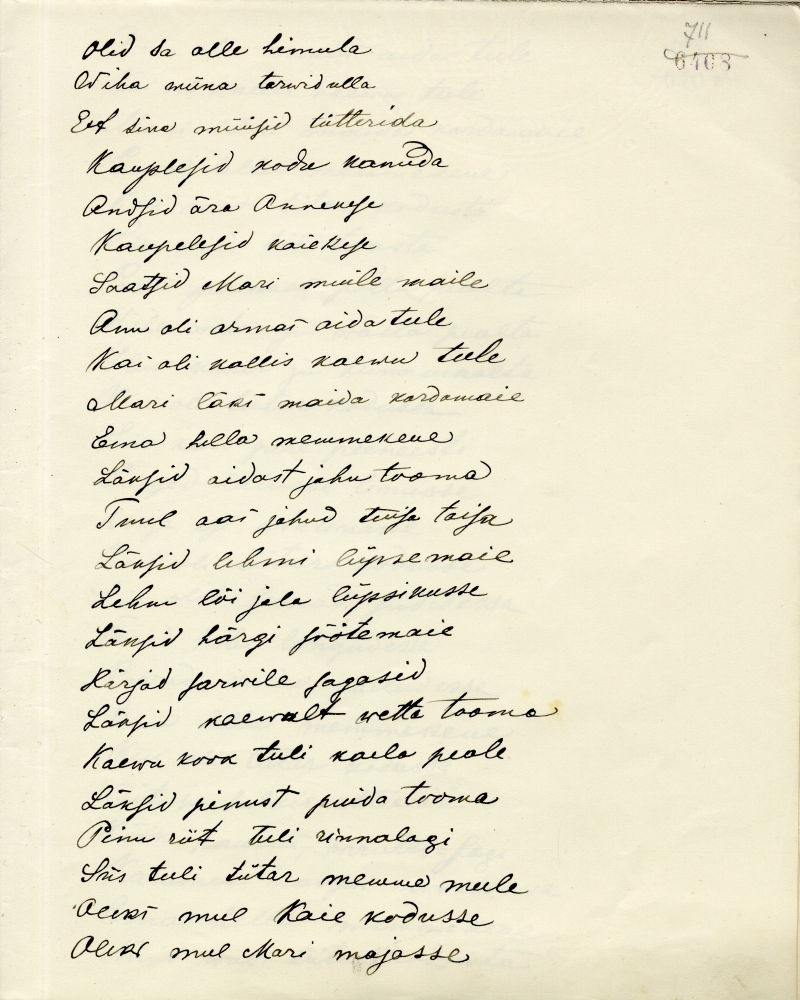 711
6408
Olid sa olle himula
Wiha miina tarwidulla
Et sina müüsid tütterida
Kauplesid kodu kanuda
Andsid ära Annekese
Kaupelesid kaiekese
Saatsid Mari muile maile
Anu oli armas aida teele
Kai oli kallis kaewu teele
Mari läks maida kordamaie
Ema hella memmekene
Läksid aidast jahu tooma
Tuul aas jahud tuisa taisa
Läksid lehmi lüpsemaie
Lehm lõi jala lüpsikusse
Läksid härgi söötemaie
Härjad sarwile sagasid
Läksid kaewult wetta tooma
Kaewu kook tuli kaela peale
Läksid pinust puida tooma
Pinu riit tuli rinnalagi
Siis tuli tütar memme meele
Oleks mul Kaie kodusse
Oleks mul Mari majasse